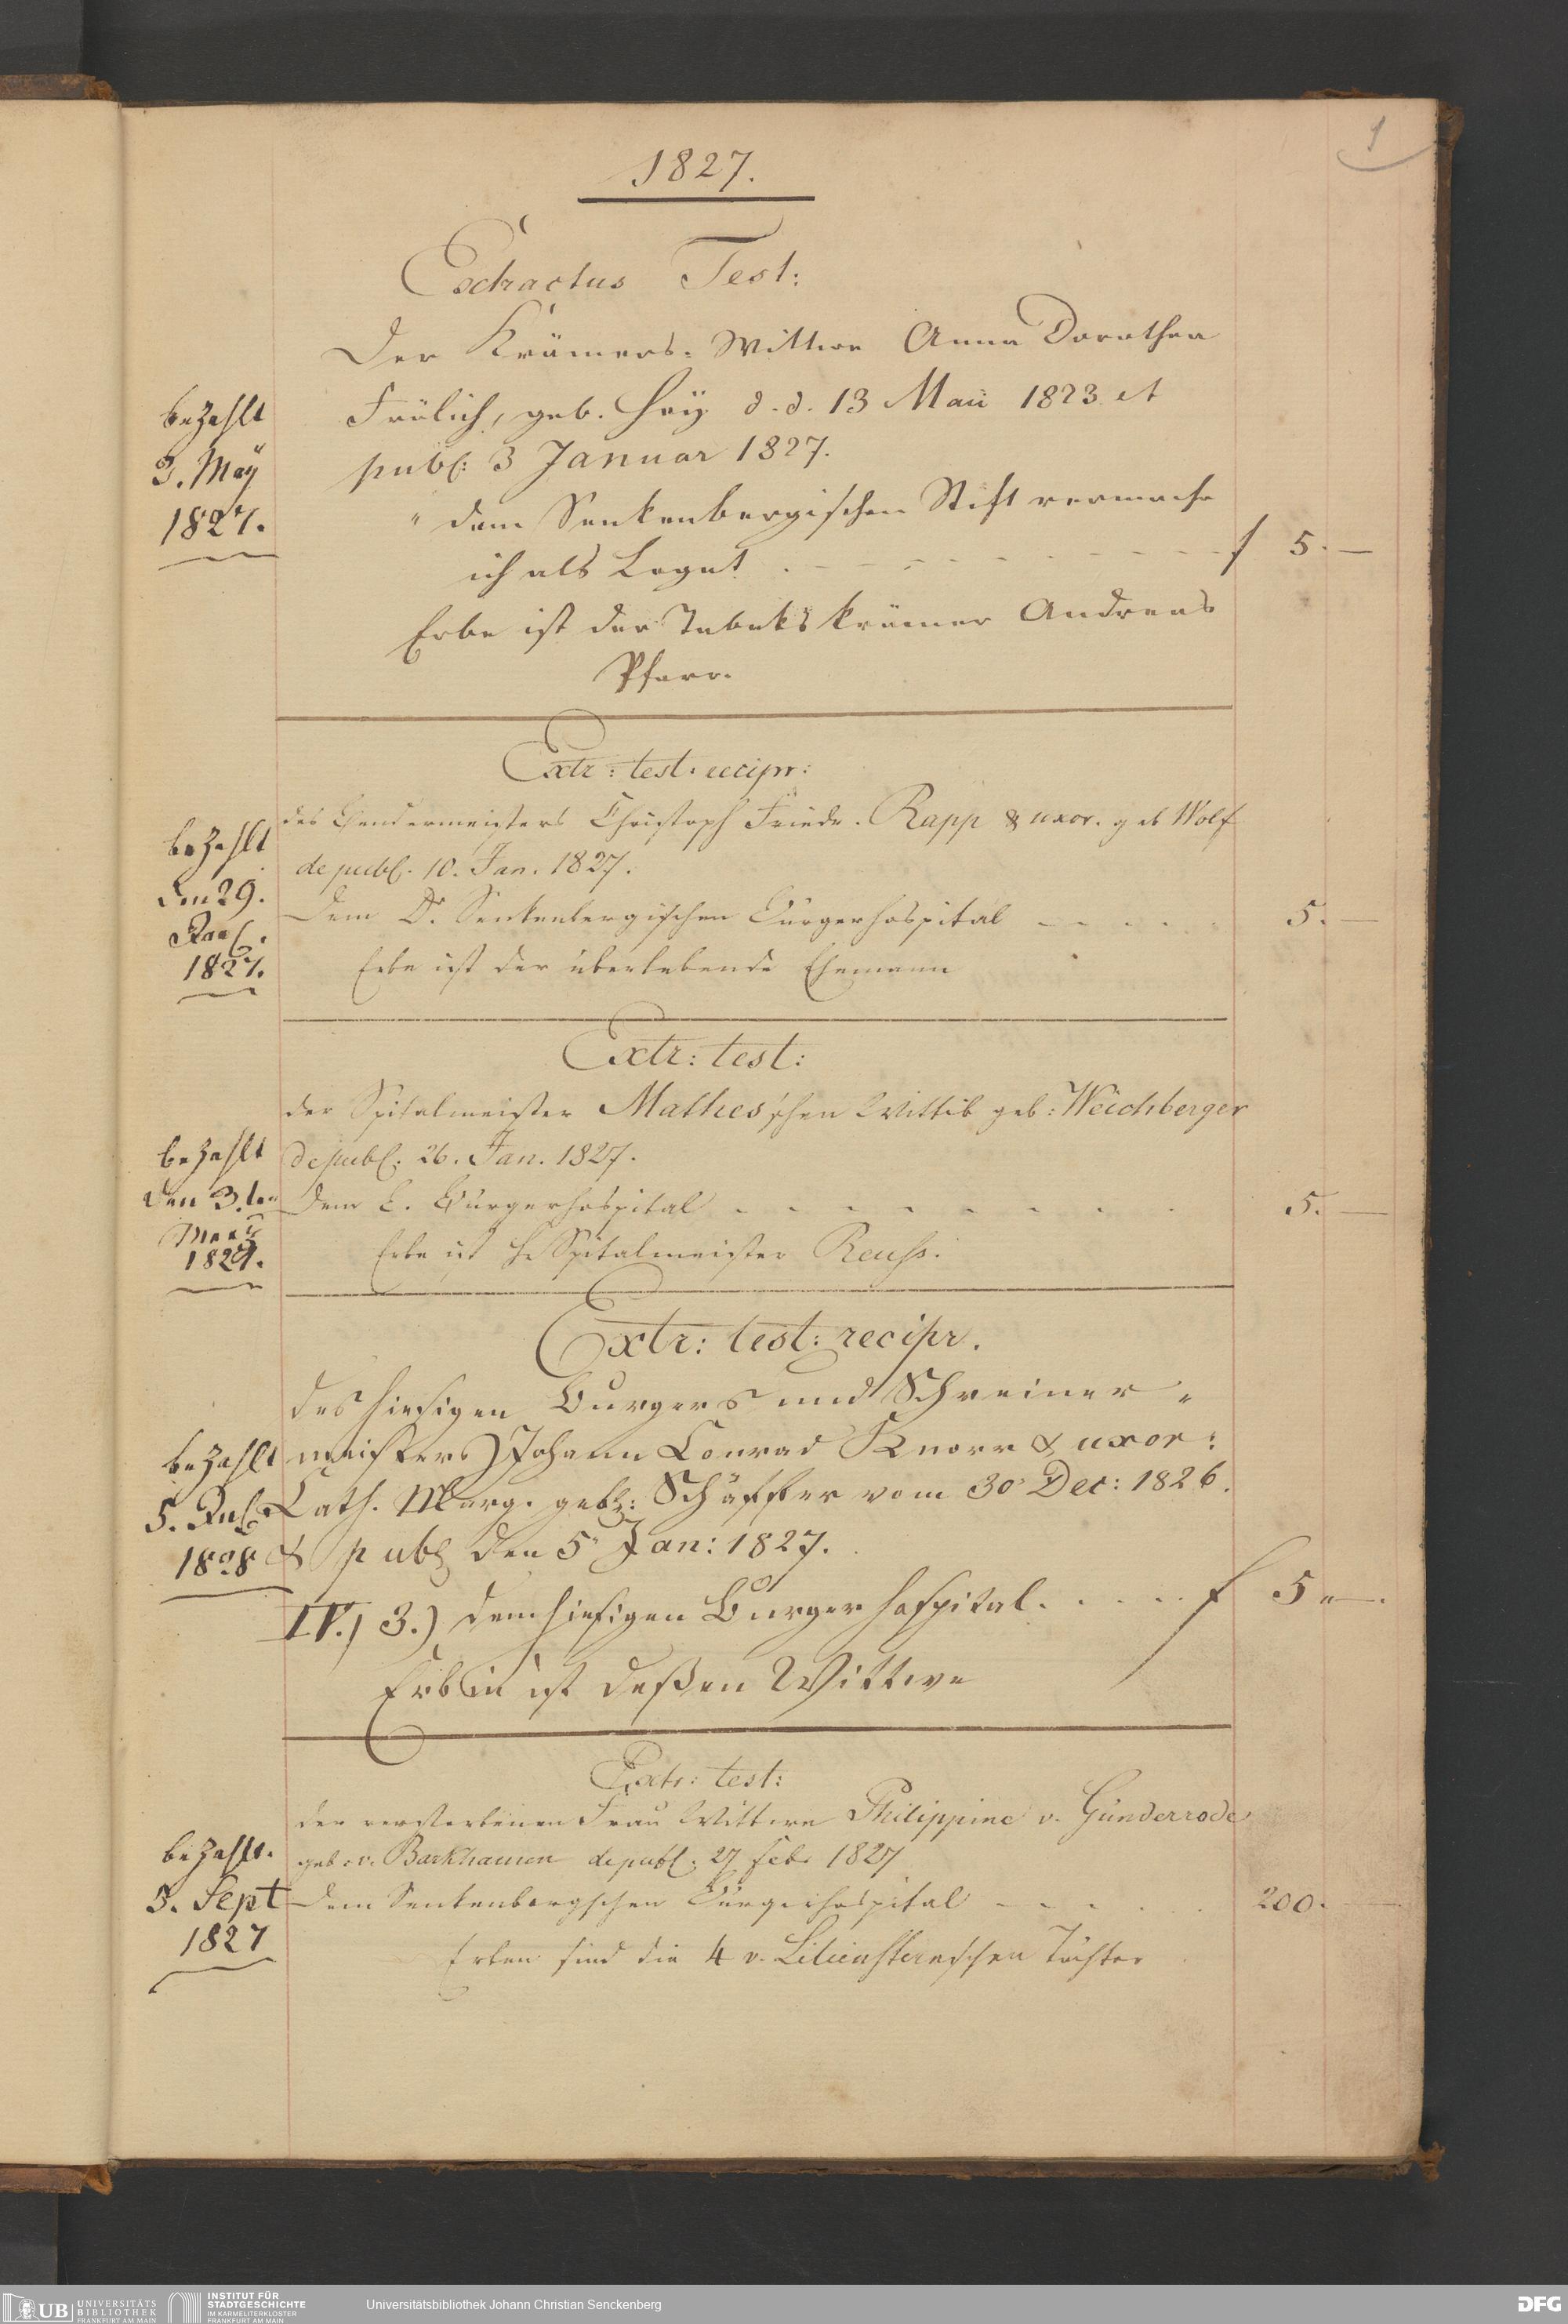 1
1827.
Extractus Test:
Der Krämers-Wittwe Anna Dorothea
Frölich, geb. Hoÿ d. d. 13 Maii 1823 et
publ: 3 Januar 1827.
bezahlt
3. Maÿ
1827.
" dem Senkenbergischen Stift vermache
ich als Legat . - - - - - - - f 5. —
Erbe ist der Tabakskrämer Andreas
Pfarr.
Extr: test. recipr:
des Bendermeisters Christoph Friedr. Rapp & uxor. geb Wolf
de publ. 10. Jan. 1827.
bezahlt
den 29.
1827.
Dem Dr. Senkenbergischen Bürgerhospital - - - - - 5. —
Erbe ist der überlebende Ehemann
Extr: test:
der Spitalmeister Mathes'schen Wittib geb: Weichberger
de publ. 26. Jan. 1827.
bezahlt
den 3.ten
1827.
Dem L. Bürgerhospital - - - - - - - - - 5. —
Erbe ist H. Spitalmeister Reuss.
Extr: test: recipr.
des hiesigen Burgers und Schreiner-
meisters) Johann Conrad Knorr & uxor:
Cath. Marg. gebz: Schäffer vom 30 Dec: 1826.
& publ den 5 Jan: 1827.
bezahlt
5.
1828
IV.) 3.) dem hiesigen Burger hospital. . . . . f 5 „ —.
Erbin ist deßen Wittwe
Extr: test:
der verstorbenen Frau Wittwe Philippine v. Günderrode
geb. v. Barkhausen de publ. 27 febr 1827
bezahlt.
3. Sept
1827
Dem Senkenbergschen Bürgerhospital - - - - - 200. —
Erben sind die 4 v. Lilienstern'schen Töchter
UB UNIVERSITÄTS
BIBLIOTHEK
FRANKFURT AM MAIN
INSTITUT FÜR
STADTGESCHICHTE
IM KARMELITERKLOSTER
FRANKFURT AM MAIN
Universitätsbibliothek Johann Christian Senckenberg
DFG